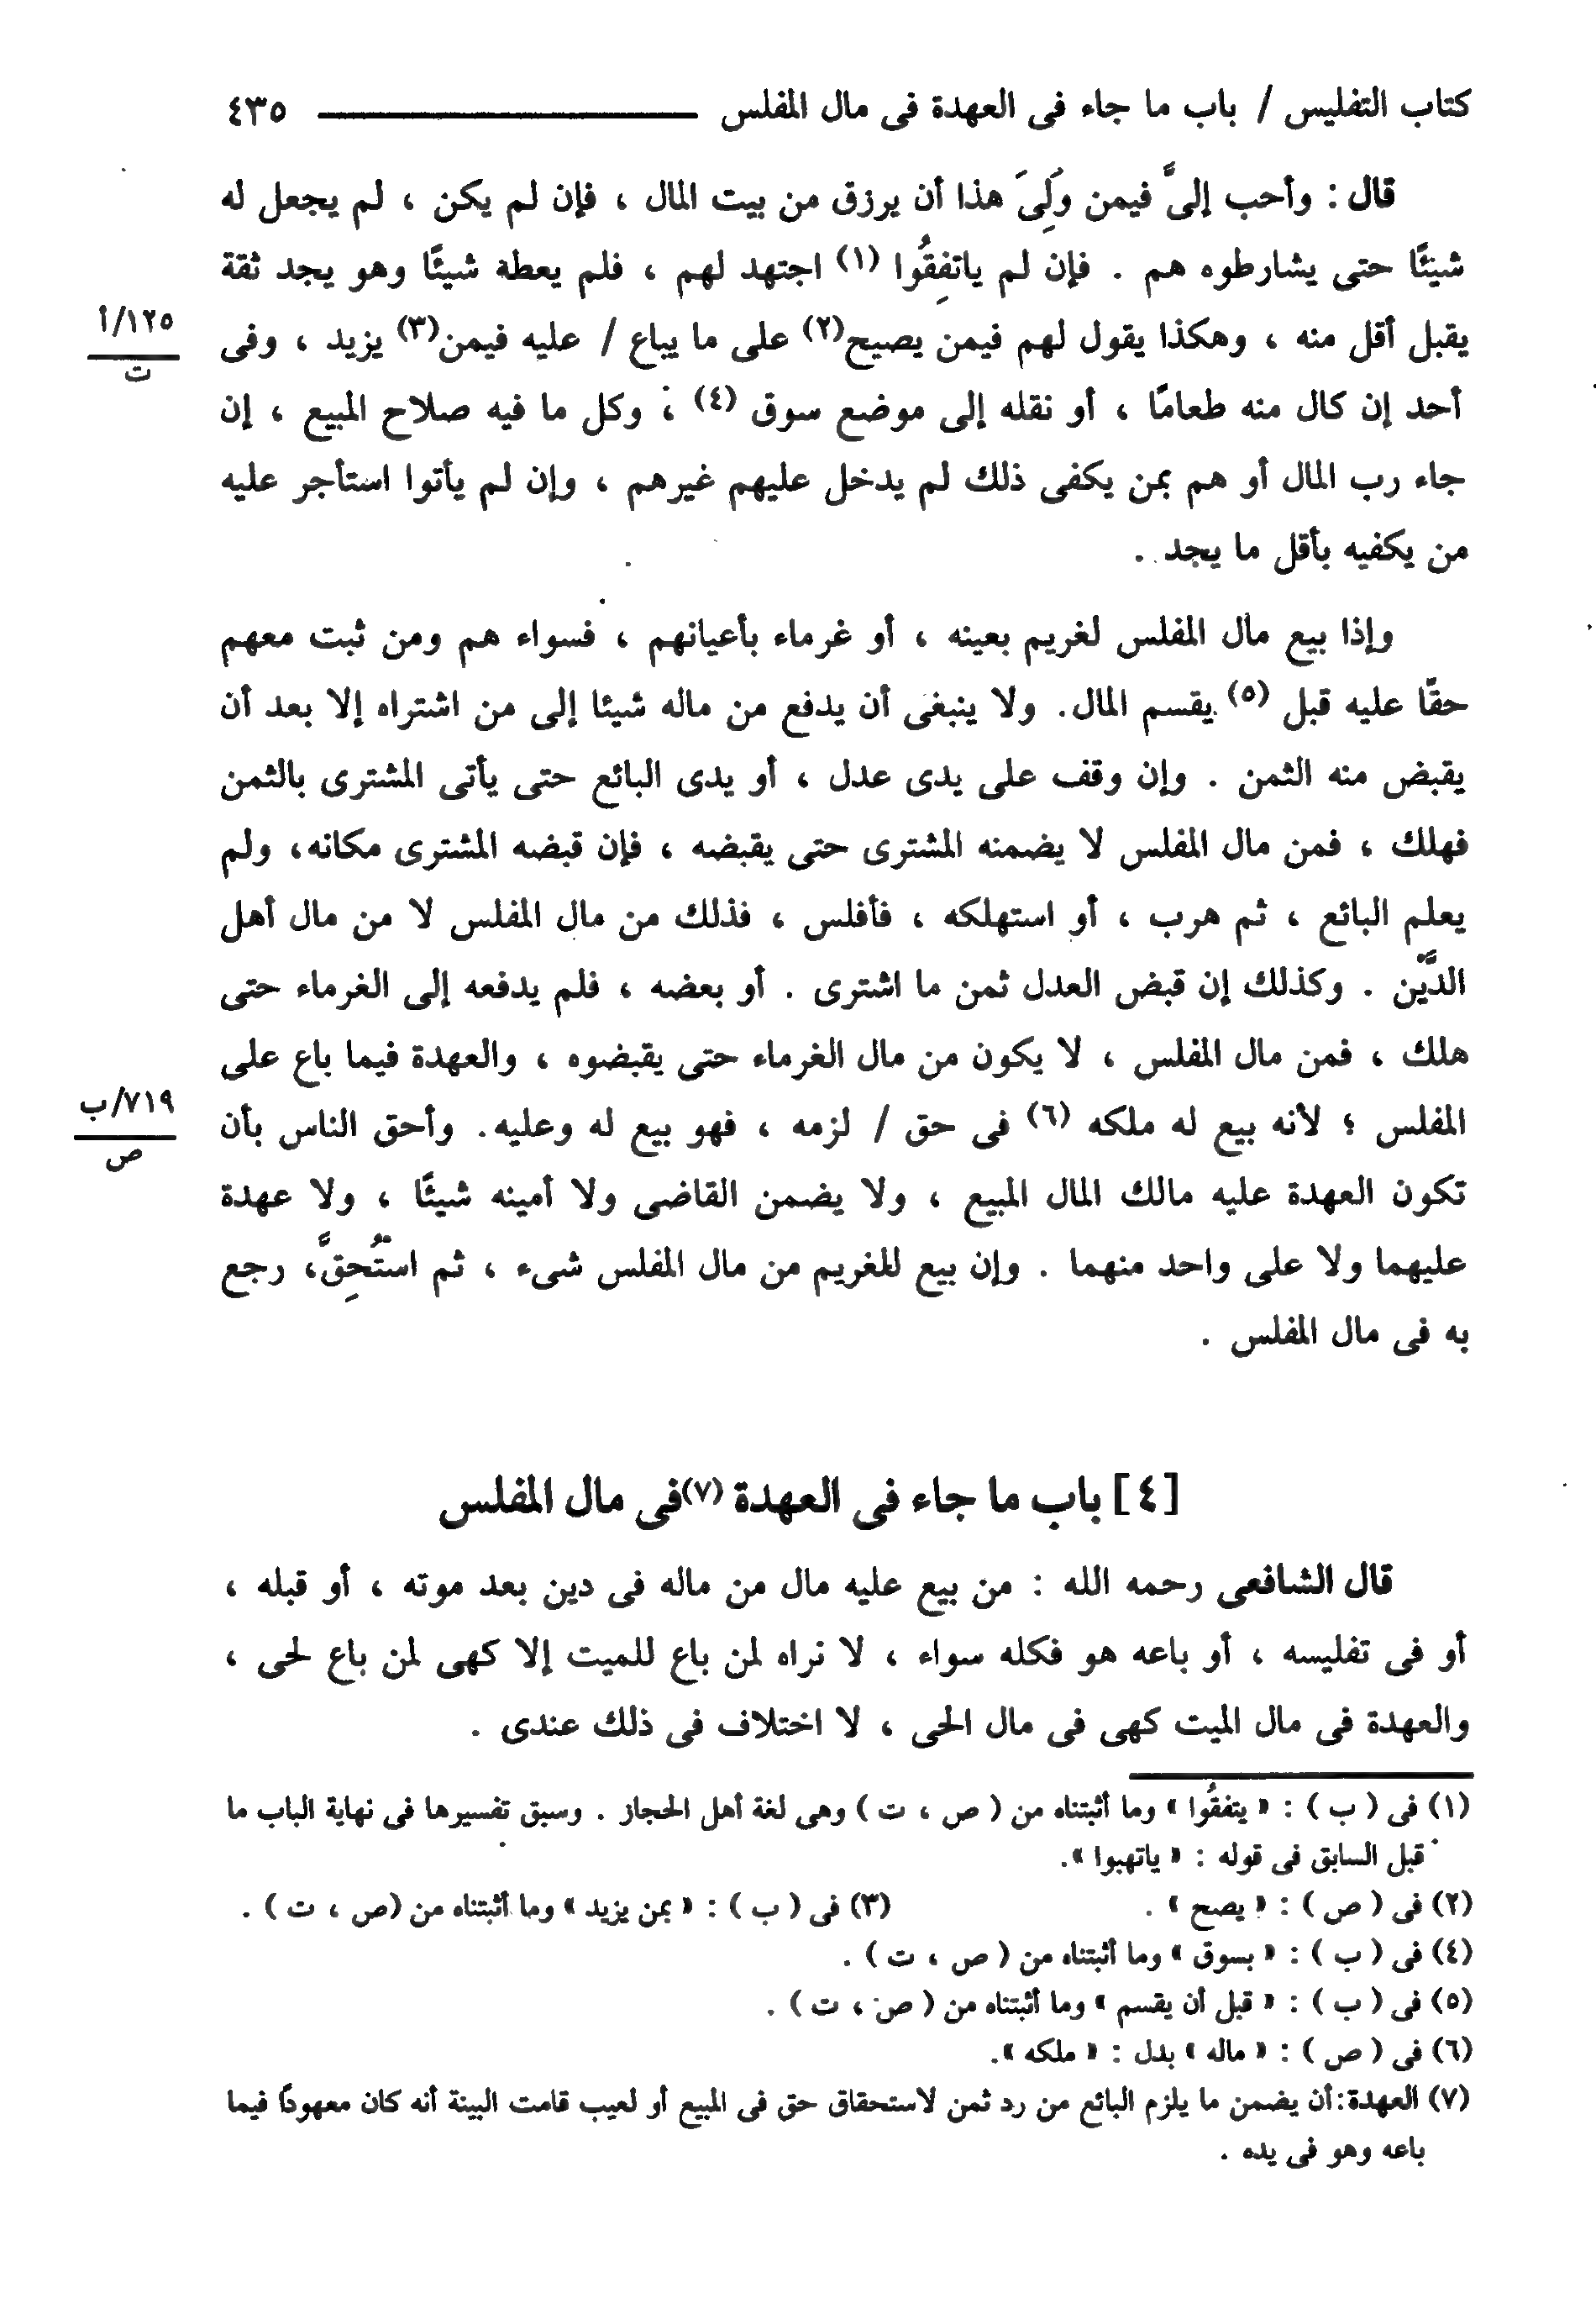 كتاب التفليس / باب ما جاء فى العهدة فى مال المفلس ٤٣٥
قال : وأحب إلىَّ فيمن وَلِىَ هذا أن يرزق من بيت المال ، فإن لم يكن ، لم يجعل له
شيئًا حتى يشارطوه هم . فإن لم ياتفِقُوا (١) اجتهد لهم ، فلم يعطة شيئًا وهو يجد ثقة
يقبل أقل منه ، وهكذا يقول لهم فيمن يصيح(٢) على ما يباع / عليه فيمن(٣) يزيد ، وفى
١٢٥/أ
ت
أحد إن كال منه طعامًا ، أو نقله إلى موضع سوق (٤) ، وكل ما فيه صلاح المبيع ، إن
جاء رب المال أو هم بمن يكفى ذلك لم يدخل عليهم غيرهم ، وإن لم يأتوا استأجر عليه
من يكفيه بأقل ما يجد .
وإذا بيع مال المفلس لغريم بعينه ، أو غرماء بأعيانهم ، فسواء هم ومن ثبت معهم
حقًا عليه قبل (٥) يقسم المال. ولا ينبغى أن يدفع من ماله شيئا إلى من اشتراه إلا بعد أن
يقبض منه الثمن . وإن وقف على يدى عدل ، أو يدى البائع حتى يأتى المشترى بالثمن
فهلك ، فمن مال المفلس لا يضمنه المشترى حتى يقبضه ، فإن قبضه المشترى مكانه، ولم
يعلم البائع ، ثم هرب ، أو استهلكه ، فأفلس ، فذلك من مال المفلس لا من مال أهل
الدَّيْن . وكذلك إن قبض العدل ثمن ما اشترى . أو بعضه ، فلم يدفعه إلى الغرماء حتى
هلك ، فمن مال المفلس ، لا يكون من مال الغرماء حتى يقبضوه ، والعهدة فيما باع على
المفلس ؛ لأنه بيع له ملكه (٦) فى حق / لزمه ، فهو بيع له وعليه. وأحق الناس بأن
٧١٩/ب
ص
تكون العهدة عليه مالك المال المبيع ، ولا يضمن القاضى ولا أمينه شيئًا ، ولا عهدة
عليهما ولا على واحد منهما . وإن بيع للغريم من مال المفلس شىء ، ثم استُحِقَّ، رجع
به فى مال المفلس .
[٤] باب ما جاء فى العهدة (٧)فى مال المفلس
قال الشافعى رحمه الله : من بيع عليه مال من ماله فى دين بعد موته ، أو قبله ،
أو فى تفليسه ، أو باعه هو فكله سواء ، لا نراه لمن باع للميت إلا كهى لمن باع لحى ،
والعهدة فى مال الميت كهى فى مال الحى ، لا اختلاف فى ذلك عندى .
(١) فى ( ب ) : « يتفقُوا » وما أثبتناه من ( ص ، ت ) وهى لغة أهل الحجاز . وسبق تفسيرها فى نهاية الباب ما
قبل السابق فى قوله : « ياتهبوا ».
(٢) فى ( ص ) : « يصح » . (٣) فى ( ب ) : « بمن يزيد » وما أثبتناه من (ص ، ت ) .
(٤) فى ( ب ) : « بسوق » وما أثبتناه من ( ص ، ت ) .
(٥) فى ( ب ) : « قبل أن يقسم » وما أثبتناه من ( ص ، ت ) .
(٦) فى ( ص ) : « ماله » بدل : « ملكه ».
(٧) العهدة:أن يضمن ما يلزم البائع من رد ثمن لاستحقاق حق فى المبيع أو لعيب قامت البينة أنه كان معهودًا فيما
باعه وهو فى يده .